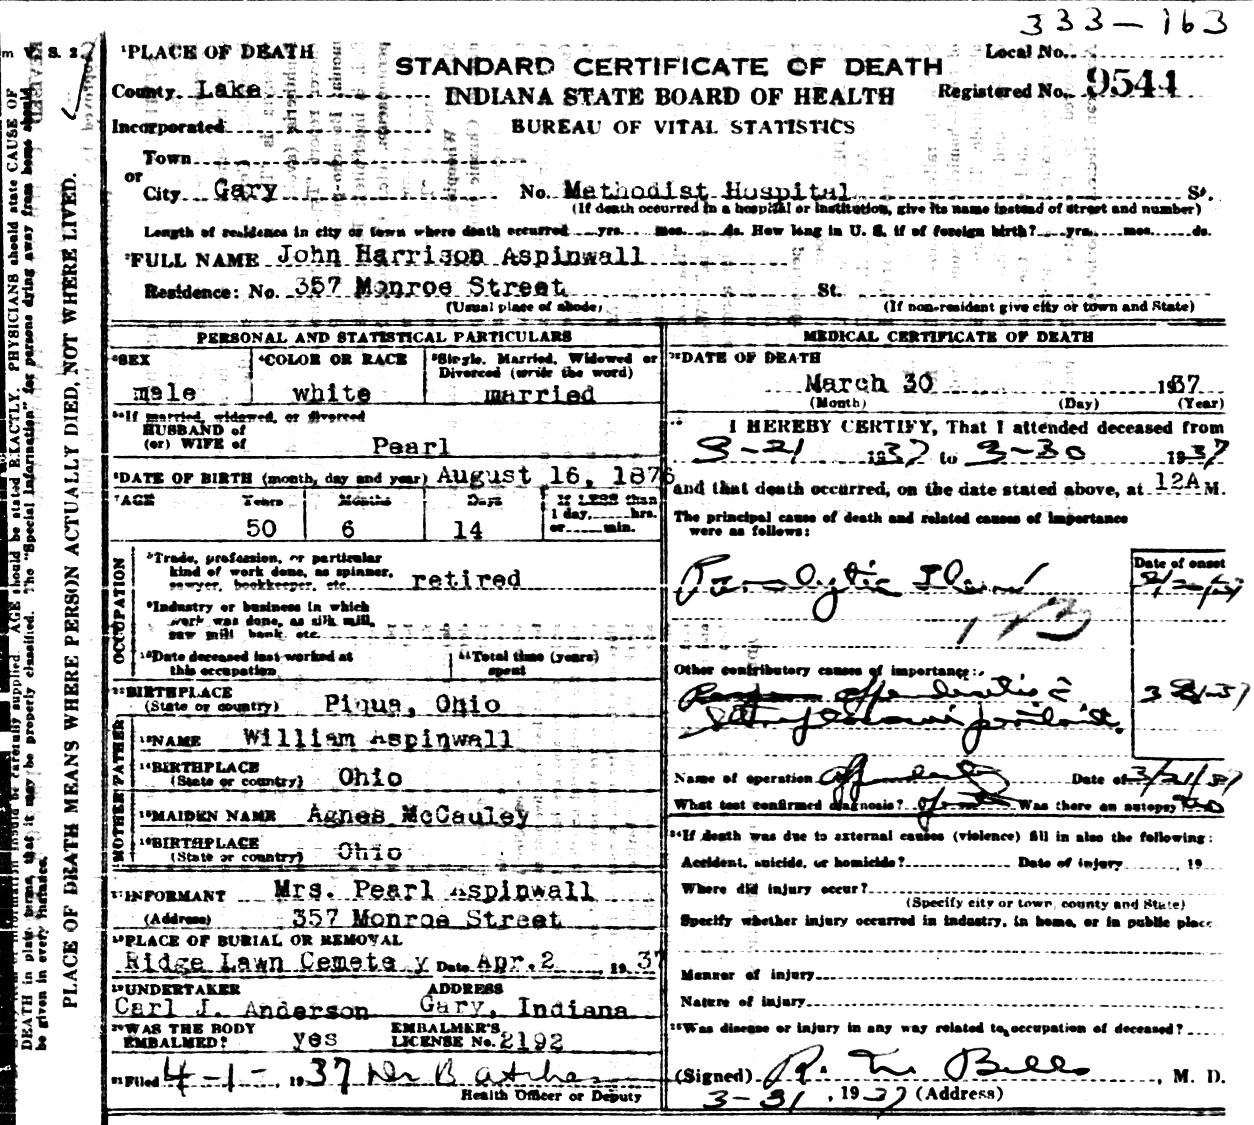 333-163
STANDARD CERTIFICATE OF DEATH
INDIANA STATE BOARD OF HEALTH
BUREAU OF VITAL STATISTICS
Local No.
Registered No. 9544
¹PLACE OF DEATH
County Lake
Incorporated
Town
or
City Gary No. Methodist Hospital St.
(If death occurred in a hospital or institution, give its name instead of street and number)
Length of residence in city or town where death occurred yrs. mos. ds. How long in U. S. if of foreign birth? yrs. mos. ds.
²FULL NAME John Harrison Aspinwall
Residence: No. 357 Monroe Street St.
(Usual place of abode) (If non-resident give city or town and State)
PERSONAL AND STATISTICAL PARTICULARS
³SEX
male
⁴COLOR OR RACE
white
⁵Single, Married, Widowed or
Divorced (write the word)
married
If married, widowed, or divorced
HUSBAND of
(or) WIFE of Pearl
⁶DATE OF BIRTH (month, day and year) August 16, 1876
⁷AGE Years Months Days If LESS than
1 day, hrs.
or min.
50 6 14
OCCUPATION
⁸Trade, profession, or particular
kind of work done, as spinner,
sawyer, bookkeeper, etc. retired
⁹Industry or business in which
work was done, as silk mill,
saw mill bank etc
¹⁰Date deceased last worked at
this occupation
¹¹Total time (years)
spent
¹²BIRTHPLACE
(State or country) Piqua, Ohio
FATHER
¹³NAME William Aspinwall
¹⁴BIRTHPLACE
(State or country) Ohio
MOTHER
¹⁵MAIDEN NAME Agnes McCauley
¹⁶BIRTHPLACE
(State or country) Ohio
¹⁷INFORMANT Mrs. Pearl Aspinwall
(Address) 357 Monroe Street
¹⁸PLACE OF BURIAL OR REMOVAL
Ridge Lawn Cemete y Date Apr. 2, 19 37
¹⁹UNDERTAKER ADDRESS
Carl J. Anderson Gary, Indiana
²⁰WAS THE BODY
EMBALMED? yes
EMBALMER'S
LICENSE No. 2192
²¹Filed 4-1- 1937
Health Officer or Deputy
MEDICAL CERTIFICATE OF DEATH
DATE OF DEATH
March 30 1937
(Month) (Day) (Year)
I HEREBY CERTIFY, That I attended deceased from
3-21 1937 to 3-30 1937
and that death occurred, on the date stated above, at 12A M.
The principal cause of death and related causes of importance
were as follows:
Date of onset
Paralytic Ileus
173
Other contributory causes of importance:
appendicitis
Name of operation Date of 3/21/37
What test confirmed diagnosis? Was there an autopsy? no
²⁴If death was due to external causes (violence) fill in also the following:
Accident, suicide, or homicide? Date of injury 19
Where did injury occur?
(Specify city or town, county and State)
Specify whether injury occurred in industry, in home, or in public place
Manner of injury
Nature of injury
²⁵Was disease or injury in any way related to occupation of deceased?
(Signed) M. D.
3-31, 1937 (Address)
PLACE OF DEATH MEANS WHERE PERSON ACTUALLY DIED, NOT WHERE LIVED.